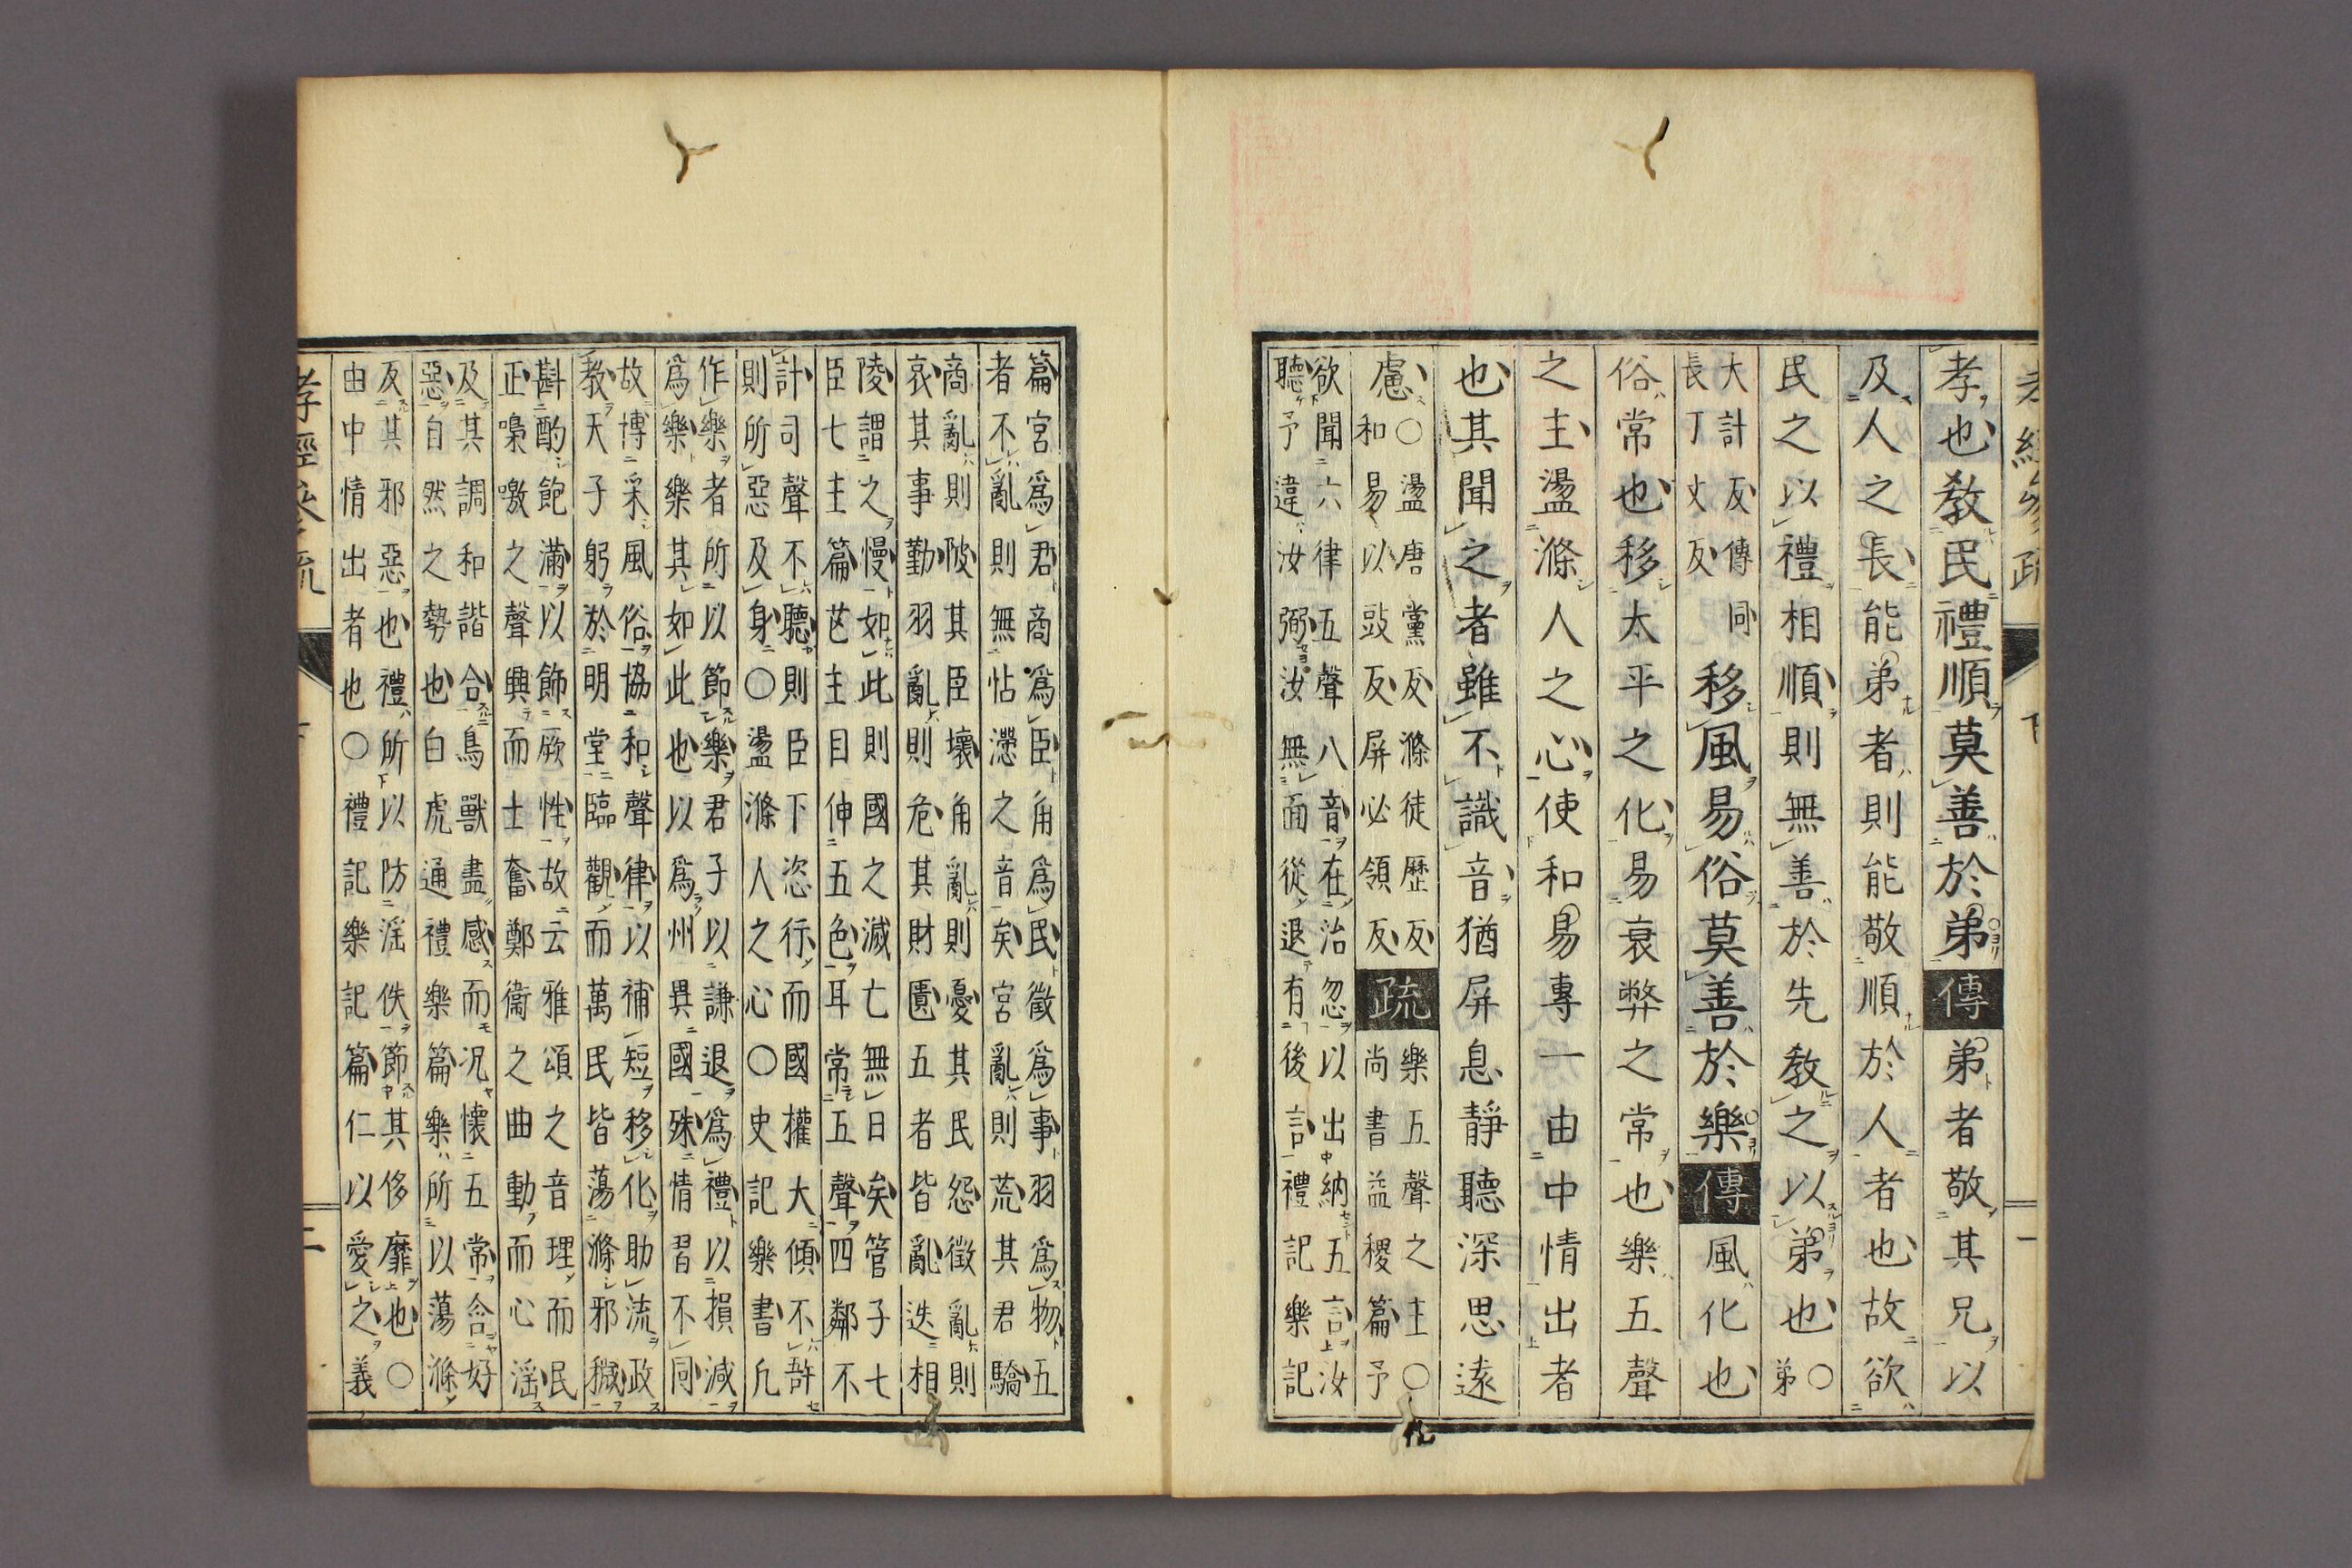 孝經參疏 下 一
孝也教民禮順莫善於弟傳弟者敬其兄以
及人之長能弟者則能敬順於人者也故欲
民之以禮相順則無善於先教之以弟也○弟
大計反傳同
長丁丈反
移風易俗莫善於樂傳風化也
俗常也移太平之化易衰弊之常也樂五聲
之主盪滌人之心使和易專一由中情出者
也其聞之者雖不識音猶屏息靜聽深思遠
慮
○盪唐黨反滌徒歷反
和易以豉反屏必領反
疏
樂五聲之主○
尚書益稷篇予
欲聞六律五聲八音在治忽以出納五言汝
聽予違汝弼汝無面從退有後言禮記樂記
篇宮爲君商爲臣角爲民徵爲事羽爲物五
者不亂則無怗懘之音矣宮亂則荒其君驕
商亂則陂其臣壞角亂則憂其民怨徵亂則
哀其事勤羽亂則危其財匱五者皆亂迭相
陵謂之慢如此則國之滅亡無日矣管子七
臣七主篇芒主目伸五色耳常五聲四鄰不
計司聲不聽則臣下恣行而國權大傾不許
則所惡及身○盪滌人之心○史記樂書凡
作樂者所以節樂君子以謙退爲禮以損減
爲樂樂其如此也以爲州異國殊情習不同
故博采風俗協和聲律以補短移化助流政
教天子躬於明堂臨觀而萬民皆蕩滌邪穢
斟酌飽滿以飾厥性故云雅頌之音理而民
正嘄噭之聲興而士奮鄭衛之曲動而心淫
及其調和諧合鳥獸盡感而况懷五常含好
惡自然之勢也白虎通禮樂篇樂所以蕩滌
反其邪惡也禮所以防淫佚節其侈靡也○
由中情出者也○禮記樂記篇仁以愛之義
孝經參疏 二